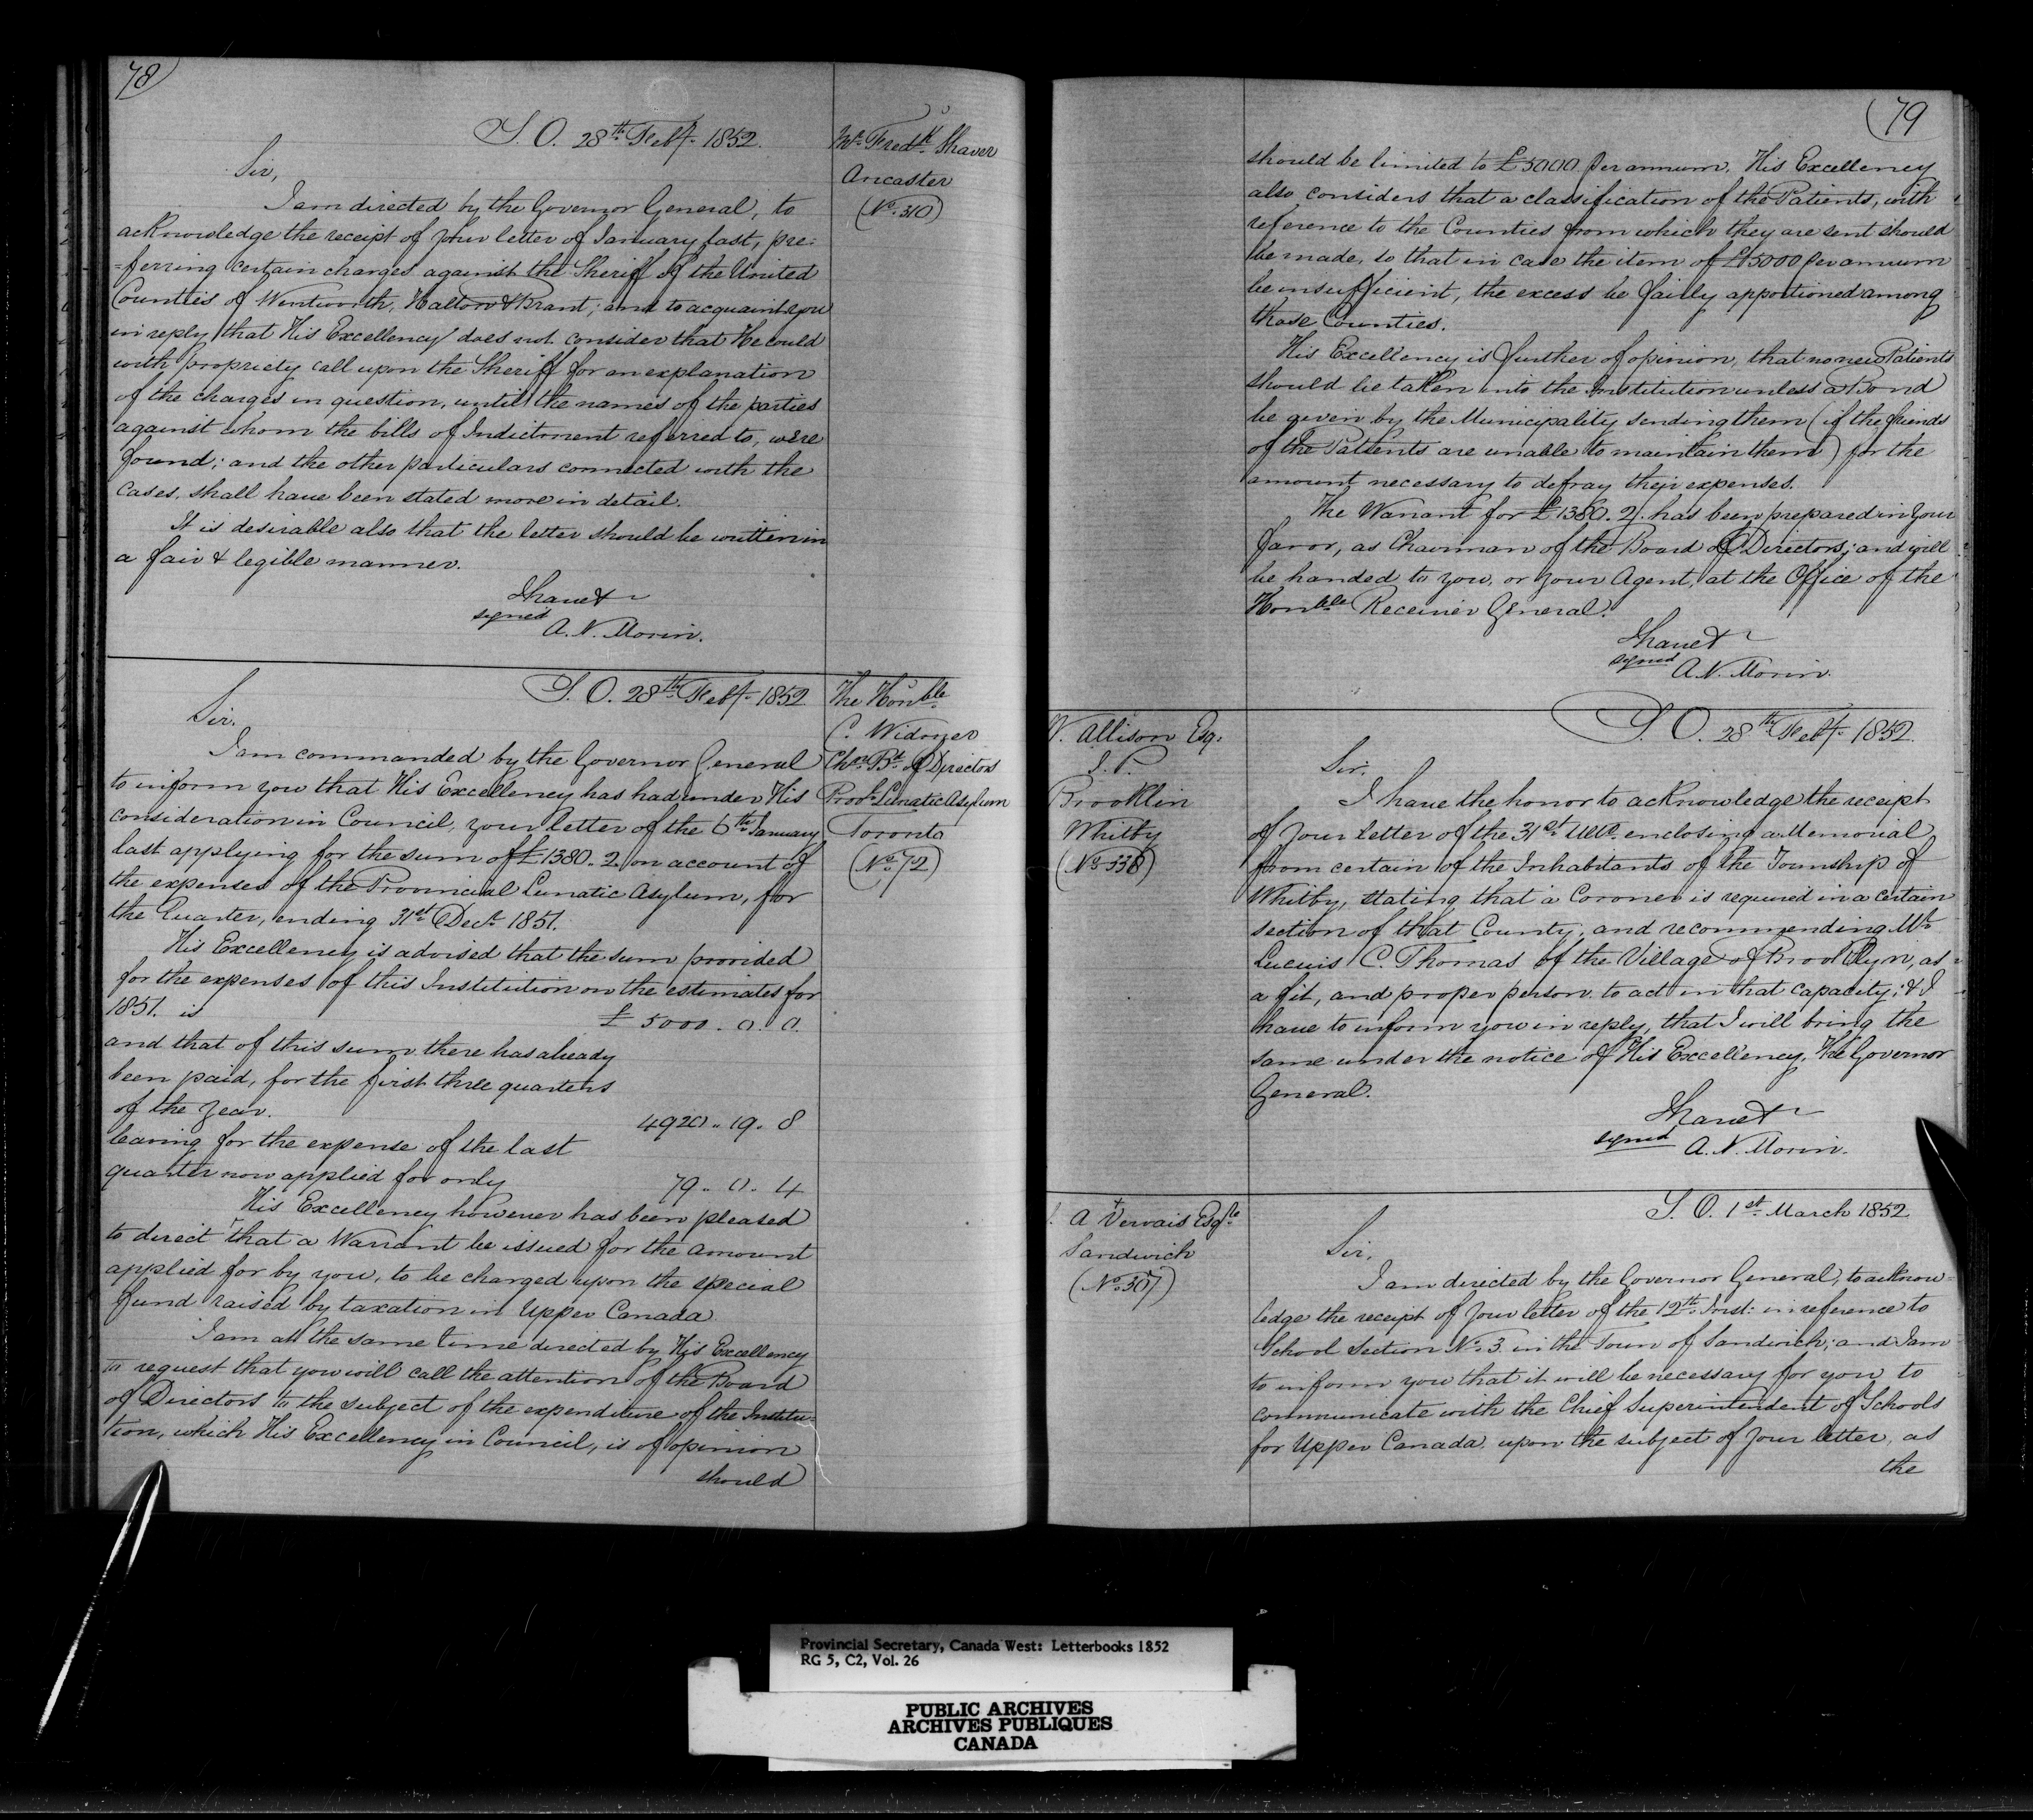 78
S. O. 28th Feby 1852.
Mr Fredk Shaver
Ancaster
(No 310)
Sir,
I am directed by the Governor General, to
acknowledge the receipt of your letter of January last, pre=
=ferring certain charges against the Sheriff of the United
Counties of Wentworth, Halton & Brant; and to acquaint you
in reply that His Excellency does not consider that He could
with propriety call upon the Sheriff for an explanation
of the charges in question, until the names of the parties
against whom the bills of Indictment referred to, were
found; and the other particulars connected with the
cases, shall have been stated more in detail.
It is desirable also that the letter should be written in
a fair & legible manner.
I have &
signed
A. N. Morin.
S. O. 28th Feby 1852
The Honble
C. Widmer
Chn Bd of Directors
Provl Lunatic Asylum
Toronto
(No 72)
Sir.
I am commanded by the Governor General
to inform you that His Excellency has had under His
consideration in Council, your letter of the 6th January
last applying for the sum of £1380. 2. on account of
the expenses of the Provincial Lunatic Asylum, for
the Quarter, ending 31st Decr 1851.
His Excellency is advised that the sum provided
for the expenses of this Institution on the estimates for
1851. is £ 5000. 0. 0.
and that of this sum there has already
been paid, for the first three quarters
of the year. 4920.. 19. 8
leaving for the expense of the last
quarter now applied for only 79.. 0. 4
His Excellency however has been pleased
to direct that a Warrant be issued for the amount
applied for by you, to be charged upon the special
fund raised by taxation in Upper Canada
I am at the same time directed by His Excellency
to request that you will call the attention of the Board
of Directors to the subject of the expenditure of the Institu=
tion, which His Excellency in Council, is of opinion
should
79
should be limited to £5000 per annum. His Excellency
also considers that a classification of the Patients, with
reference to the Counties from which they are sent should
be made, so that in case the item of £5000 per annum
be insufficient, the excess be fairly apportioned among
those Counties.
His Excellency is further of opinion, that no new Patients
should be taken into the Institution unless a Bond
be given by the Municipality sending them (if the friends
of the Patients are unable to maintain them) for the
amount necessary to defray their expenses.
The Warrant for £1380. 2. has been prepared in your
favor, as Chairman of the Board of Directors; and will
be handed to you, or your Agent, at the Office of the
Honble Receiver General.
I have &
signed
A. N. Morin.
S. O. 28th Feby 1852.
Allison Esq.
J. P.
Brooklin
Whitby
(No 338)
Sir.
I have the honor to acknowledge the receipt
of your letter of the 31st Ulto. enclosing a Memorial
from certain of the Inhabitants of the Township of
Whitby, stating that a Coroner is required in a certain
section of that County, and recommending Mr
Lucius C. Thomas of the Village of Brooklyn, as
a fit, and proper person to act in that capacity; & I
have to inform you in reply, that I will bring the
same under the notice of His Excellency, the Governor
General.
I have &
signed
A. N. Morin.
S. O. 1st March 1852.
A Vervais Esqre
Sandwich
(No 307)
Sir.
I am directed by the Governor General, to acknow=
ledge the receipt of your letter of the 12th Inst: in reference to
School Section No 3 in the Town of Sandwich; and I am
to inform you that it will be necessary for you to
communicate with the Chief Superintendent of Schools
for Upper Canada upon the subject of your letter, as
the
Provincial Secretary, Canada West: Letterbooks 1852
RG 5, C2, Vol. 26
PUBLIC ARCHIVES
ARCHIVES PUBLIQUES
CANADA